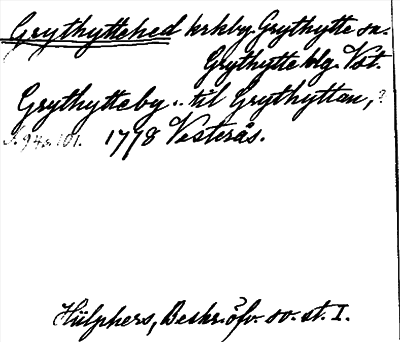 Grythyttehed krkby. Grythytte sn.
Grythytte blg. Vst.
Grythytteby .. til Grythyttan, ?
S. 94 o. 101. 1798 Vesterås.
Hülphers, Beskr. öfv. sv. st. I.